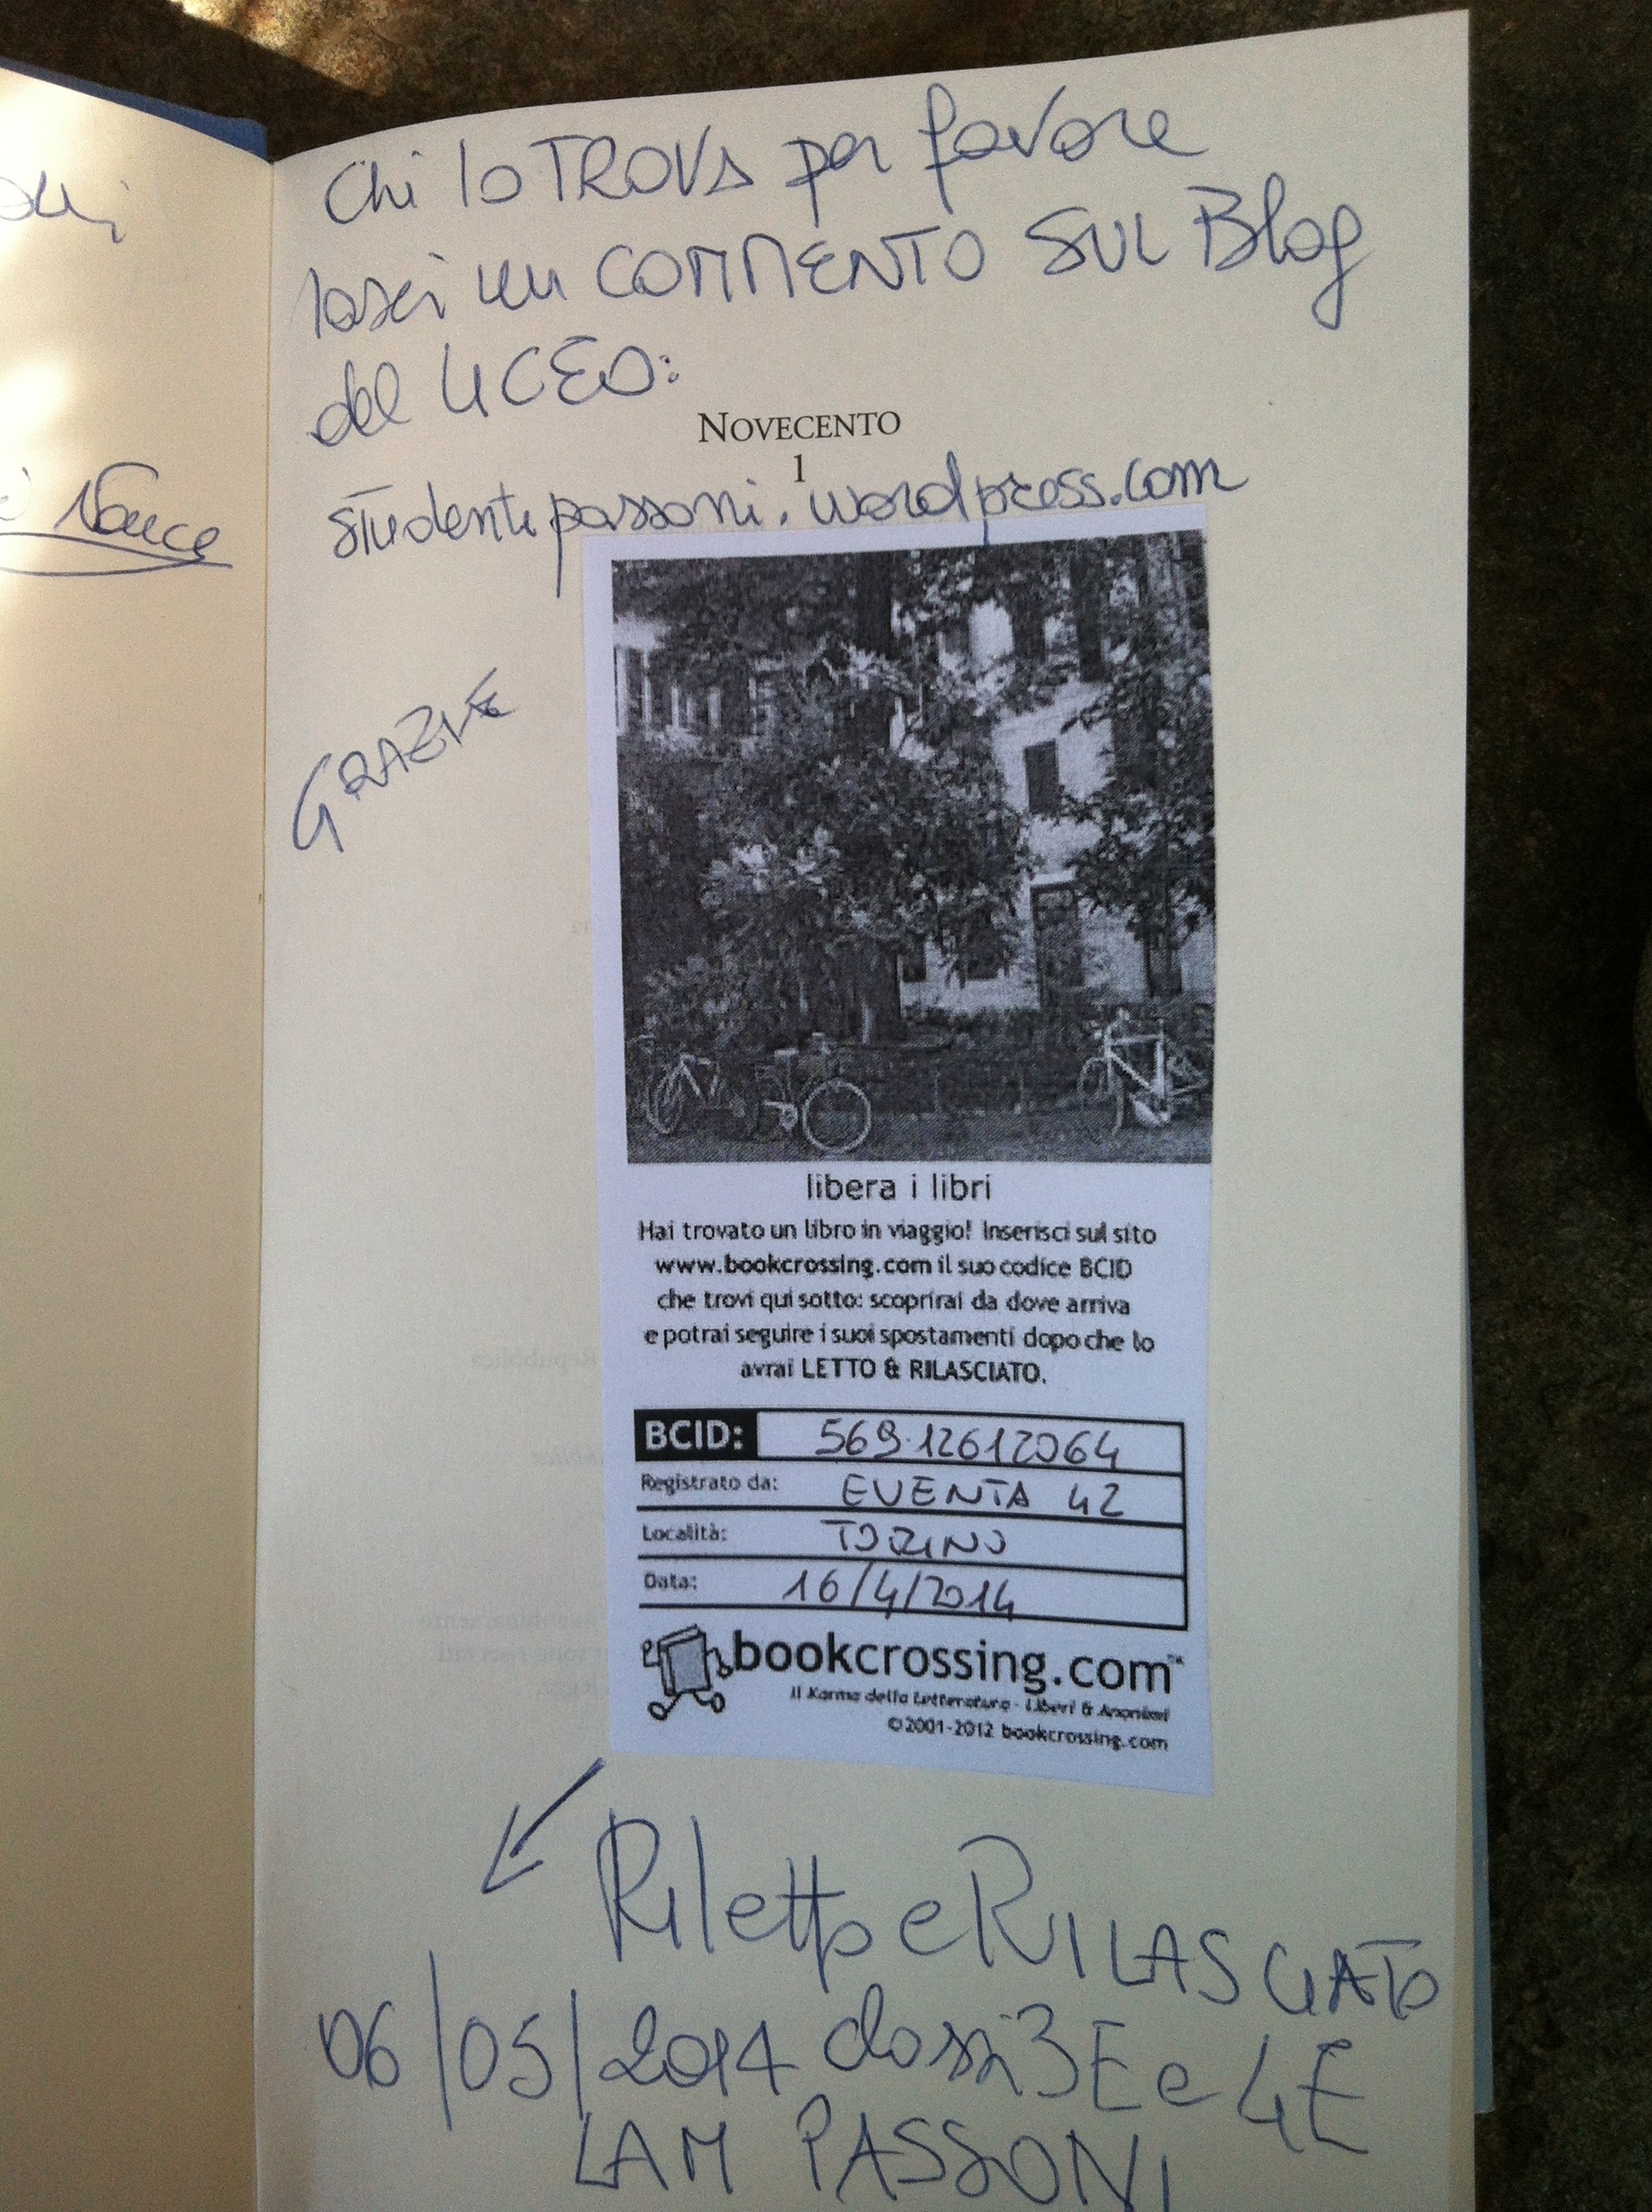 Chi lo TROVA per favore
lasci un COMMENTO SUL Blog
del LICEO:
NOVECENTO
1
studentipassoni.wordpress.com
GRAZIE
Nouce
libera i libri
Hai trovato un libro in viaggio! Inserisci sul sito
www.bookcrossing.com il suo codice BCID
che trovi qui sotto: scoprirai da dove arriva
e potrai seguire i suoi spostamenti dopo che lo
avrai LETTO & RILASCIATO.
BCID: 569-12612064
Registrato da: EVENTA 42
Località: TORINO
Data: 16/4/2014
bookcrossing.com™
Il Karma della Letteratura - Liberi & Anonimi
©2001-2012 bookcrossing.com
Riletto e RILASCIATO
06/05/2014 classi 3E e 4E
LAM PASSONI